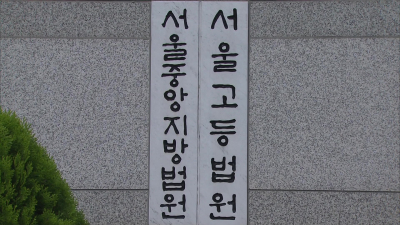 서울중앙지방법원
서울고등법원